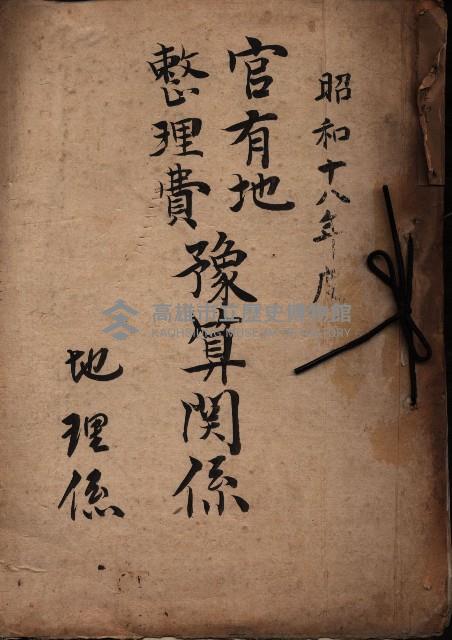 昭和十八年度
官有地
整理費
豫算関係
地理係
高雄市立歷史博物館
KAOHSIUNG MUSEUM OF HISTORY